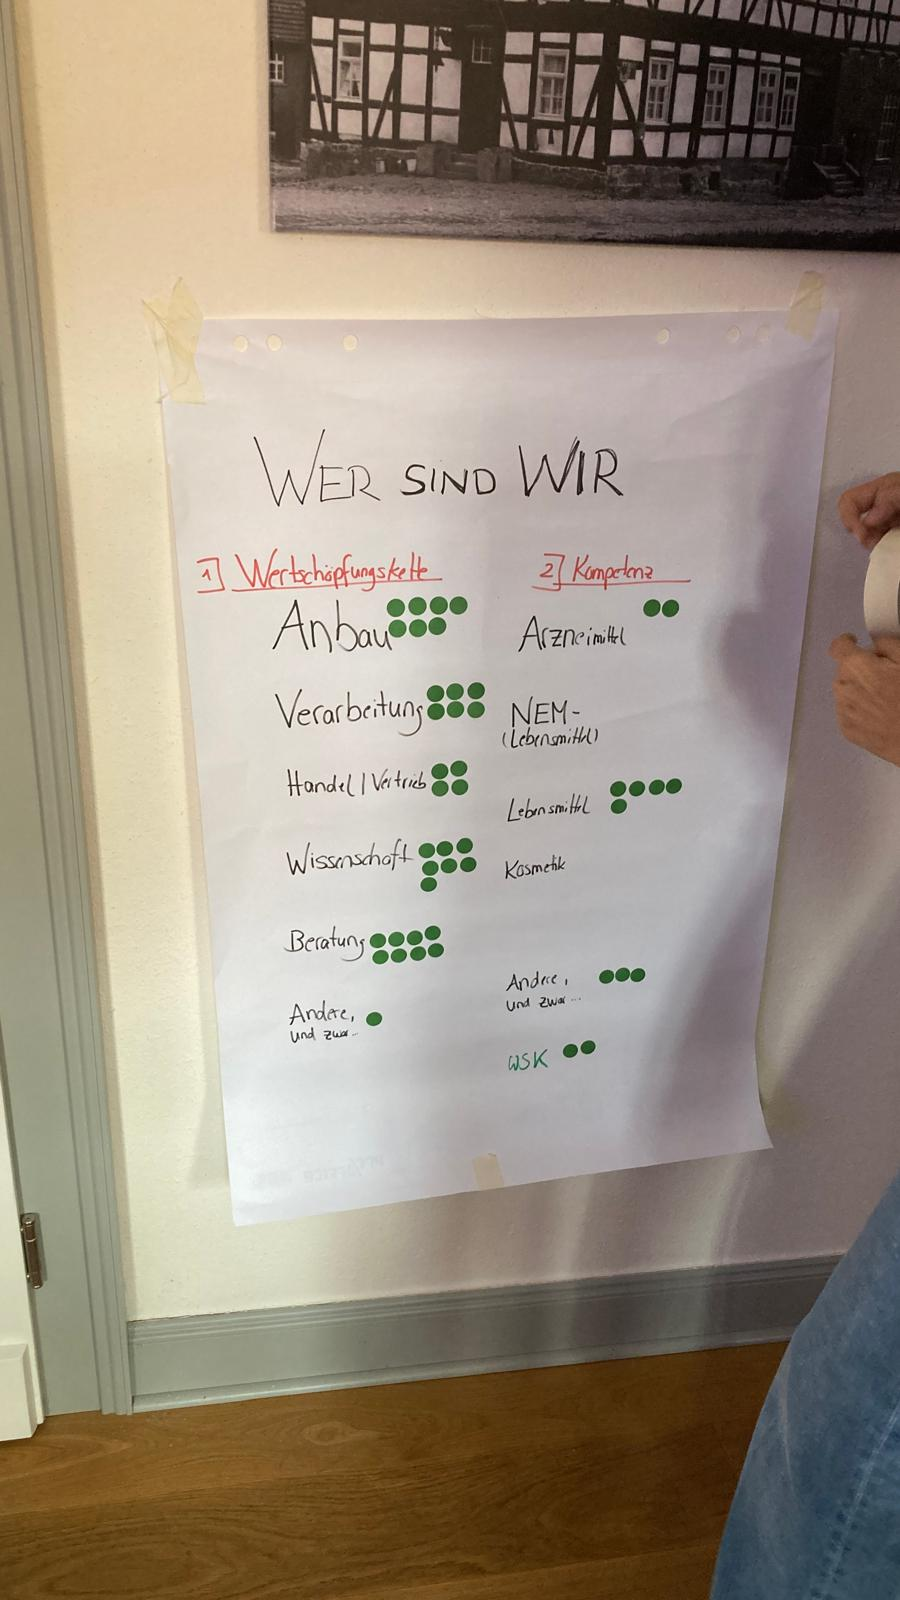 WER SIND WIR
1] Wertschöpfungskette
Anbau
Verarbeitung
Handel / Vertrieb
Wissenschaft
Beratung
Andere,
und zwar...
2] Kompetenz
Arzneimittel
NEM-
(Lebensmittel)
Lebensmittel
Kosmetik
Andere,
und zwar...
WSK